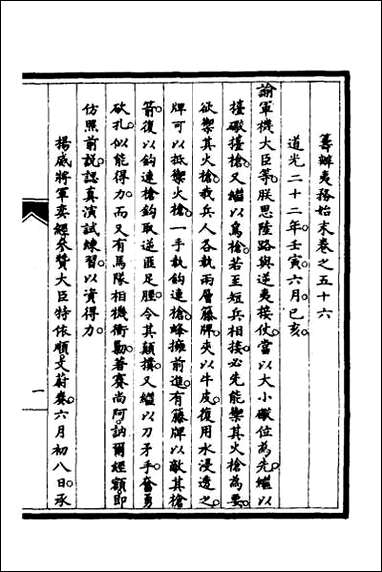 籌辦夷務始末卷之五十六
道光二十二年壬寅六月己亥
諭軍機大臣等朕思陸路與逆夷接仗當以大小礮位為先繼以
檯礮檯槍又繼以鳥槍若至短兵相接必先能禦其火槍為要
欲禦其火槍我兵人各執兩層藤牌夾以牛皮復用水浸透之
牌可以抵禦火槍一手執鉤連槍蜂擁前進有藤牌以敵其槍
箭復以鉤連槍鉤取逆匪足脛令其顛撲又繼以刀矛手奮勇
砍扎似能得力而又有馬隊相機衝動著賽尚阿訥爾經額即
仿照前說認真演試練習以資得力
揚威將軍奕經參贊大臣特依順文蔚奏六月初八日承
一